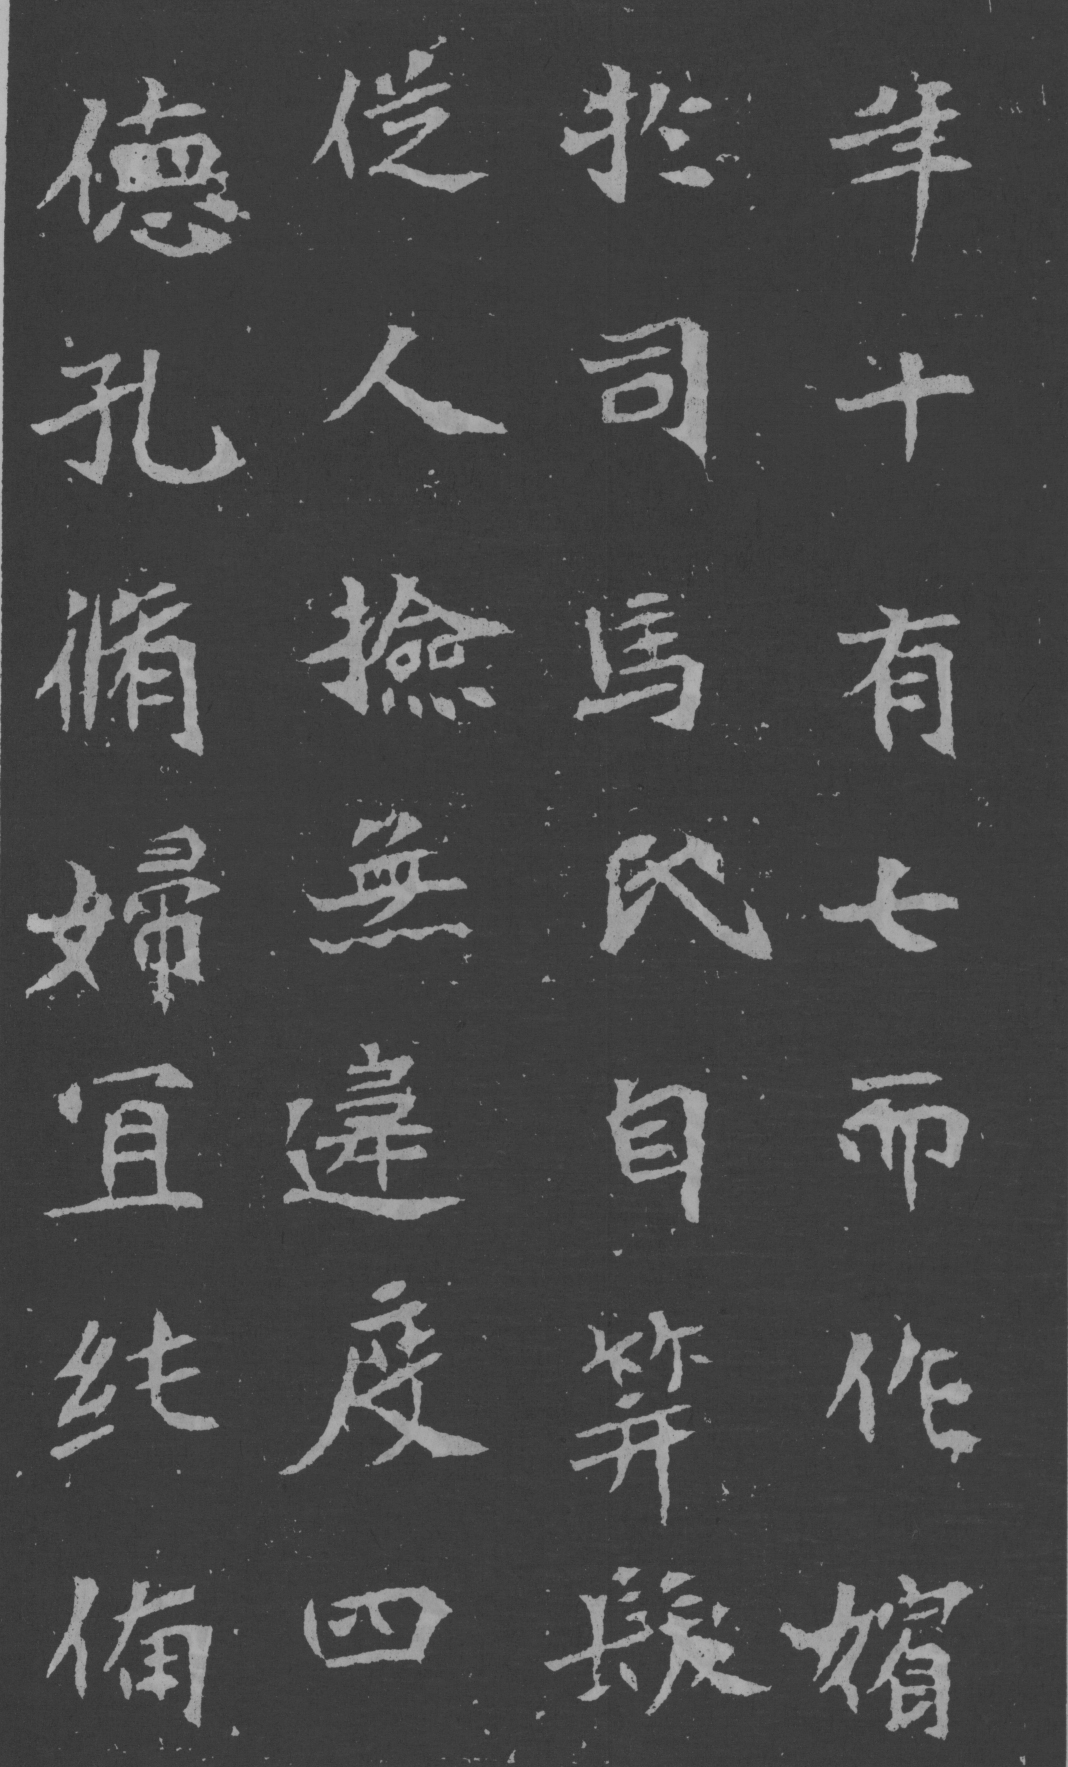 年十有七而作嬪
於司馬氏自笄髮
從人撿無違度四
德孔脩婦宜純備